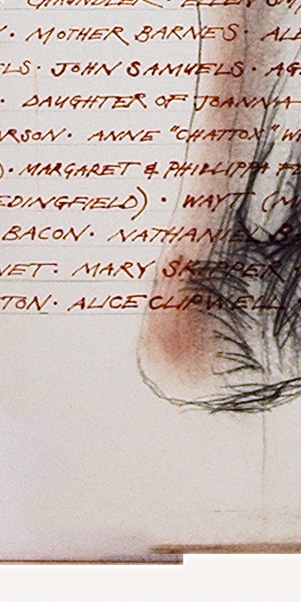 CHANDLER · ELLEN
· MOTHER BARNES · ALE
ELS · JOHN SAMUELS · AG
· DAUGHTER OF JOANNA
ARSON · ANNE "CHATTOX" W
) · MARGARET & PHILLIPPA FL
EDINGFIELD) · WAYT (M
BACON · NATHANIEL B
NET · MARY SKIPPER
TON · ALICE CLIPWELL